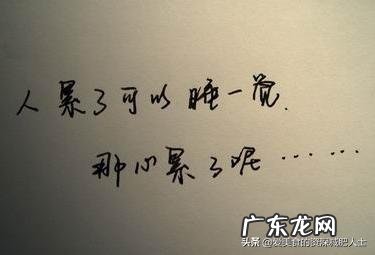 人累了可以睡一觉.
那心累了呢……
广东龙网
头条@爱美食的资深减肥人士